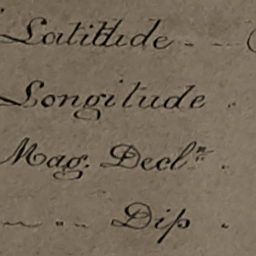 Latitude
Longitude
Mag. Decl.ⁿ
" " Dip